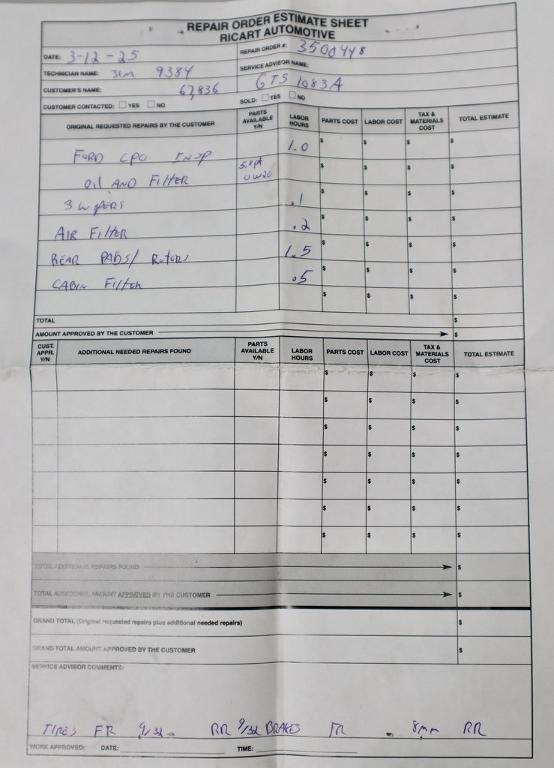 REPAIR ORDER ESTIMATE SHEET
RICART AUTOMOTIVE
DATE: 3-12-25 REPAIR ORDER #: 3500448
TECHNICIAN NAME: JIM 9384 SERVICE ADVISOR NAME:
CUSTOMER'S NAME: 67,836 GTS 1083A
CUSTOMER CONTACTED: YES NO SOLD: YES NO
ORIGINAL REQUESTED REPAIRS BY THE CUSTOMER PARTS AVAILABLE Y/N LABOR HOURS PARTS COST LABOR COST TAX & MATERIALS COST TOTAL ESTIMATE
FORD CPO INSP 1.0 $ $ $ $
OIL AND FILTER 0W20 $ $ $ $
3 WIPERS .1 $ $ $ $
AIR FILTER .2 $ $ $ $
REAR PADS/ Rotors 1.5 $ $ $ $
CABIN FILTER .5 $ $ $ $
$ $ $ $
TOTAL $
AMOUNT APPROVED BY THE CUSTOMER $
CUST. APPR. Y/N ADDITIONAL NEEDED REPAIRS FOUND PARTS AVAILABLE Y/N LABOR HOURS PARTS COST LABOR COST TAX & MATERIALS COST TOTAL ESTIMATE
$ $ $ $
$ $ $ $
$ $ $ $
$ $ $ $
$ $ $ $
$ $ $ $
$ $ $ $
TOTAL ADDITIONAL REPAIRS FOUND $
TOTAL ADDITIONAL AMOUNT APPROVED BY THE CUSTOMER $
GRAND TOTAL (Original requested repairs plus additional needed repairs) $
GRAND TOTAL AMOUNT APPROVED BY THE CUSTOMER $
SERVICE ADVISOR COMMENTS:
TIRES FR 9/32 RR 9/32 BRAKES FR 8mm RR
WORK APPROVED: DATE: TIME: